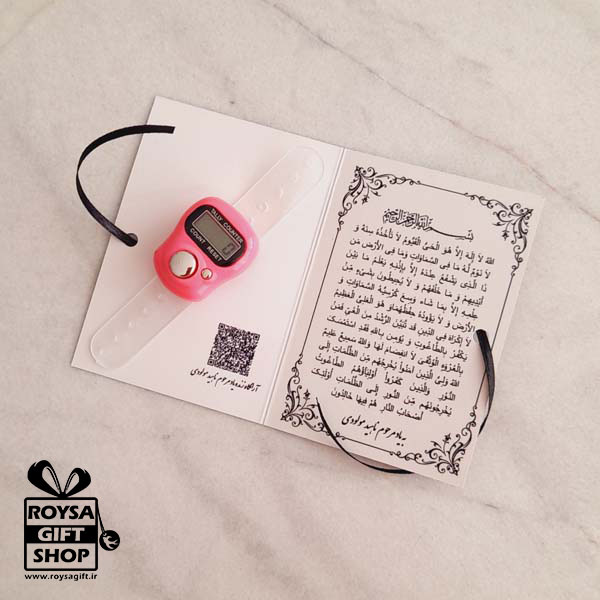 TALLY COUNTER
0
COUNT RESET
بسم الله الرحمن الرحیم
اللهُ لَا إِلَهَ إِلَّا هُوَ الْحَيُّ الْقَيُّومُ لَا تَأْخُذُهُ سِنَةٌ وَ
لَا نَوْمٌ لَهُ مَا فِي السَّمَاوَاتِ وَمَا فِي الْأَرْضِ مَنْ
ذَا الَّذِي يَشْفَعُ عِنْدَهُ إِلَّا بِإِذْنِهِ يَعْلَمُ مَا بَيْنَ
أَيْدِيهِمْ وَ مَا خَلْفَهُمْ وَ لَا يُحِيطُونَ بِشَيْءٍ مِنْ
عِلْمِهِ إِلَّا بِمَا شَاءَ وَسِعَ كُرْسِيُّهُ السَّمَاوَاتِ وَ
الْأَرْضَ وَ لَا يَؤُودُهُ حِفْظُهُمَا وَ هُوَ الْعَلِيُّ الْعَظِيمُ
لَا إِكْرَاهَ فِي الدِّينِ قَدْ تَبَيَّنَ الرُّشْدُ مِنَ الْغَيِّ فَمَنْ
يَكْفُرْ بِالطَّاغُوتِ وَ يُؤْمِنْ بِاللهِ فَقَدِ اسْتَمْسَكَ
بِالْعُرْوَةِ الْوُثْقَى لَا انْفِصَامَ لَهَا وَاللهُ سَمِيعٌ عَلِيمٌ
اللهُ وَلِيُّ الَّذِينَ آمَنُوا يُخْرِجُهُمْ مِنَ الظُّلُمَاتِ إِلَى
النُّورِ وَالَّذِينَ كَفَرُوا أَوْلِيَاؤُهُمُ الطَّاغُوتُ
يُخْرِجُونَهُمْ مِنَ النُّورِ إِلَى الظُّلُمَاتِ أُولَئِكَ
أَصْحَابُ النَّارِ هُمْ فِيهَا خَالِدُونَ
بیاد مرحوم ناهید مولودی
ROYSA
GIFT
SHOP
www.roysagift.ir